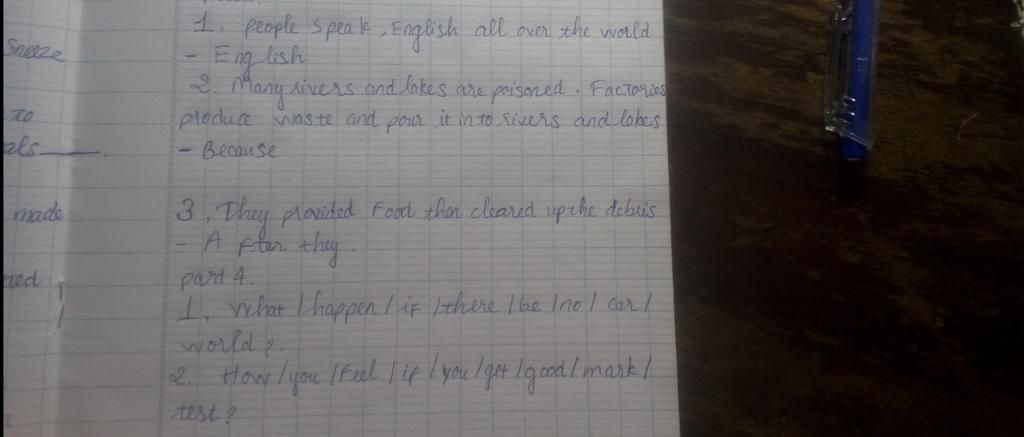 1, people speak, English all over the world
- English
2. Many rivers and lakes are poisoned. Factories
produce waste and pour it into rivers and lakes
- Because
3, They provided Food then cleared up the debris
- After they.
part 4.
1, What / happen / if / there / be / no / car /
world?.
2. How / you / feel / if / you / get / good / mark /
test?
Sneeze
to
als ____.
made
ted